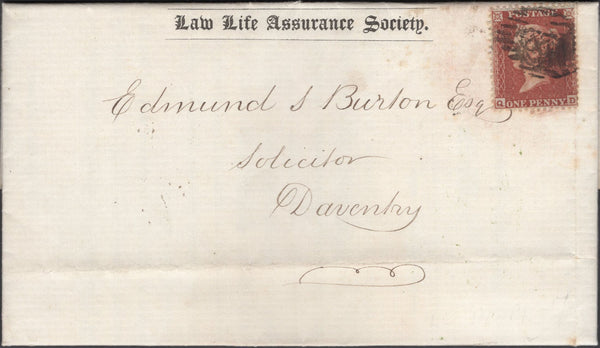 Law Life Assurance Society.
POSTAGE
ONE PENNY
Q D
Edmund S Burton Esq
Solicitor
Daventry